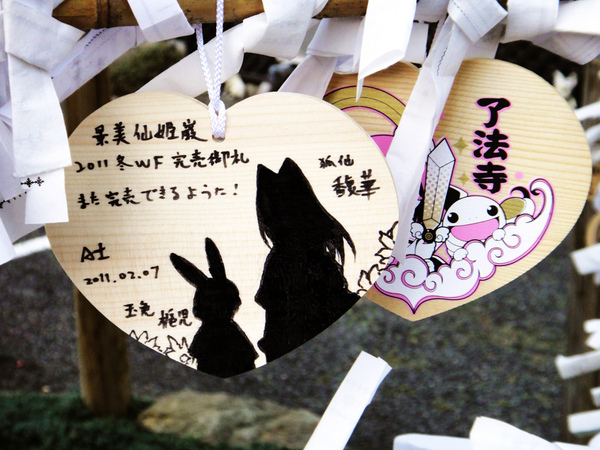 景美仙姫巌
2011 冬WF 完売御礼
また完売できるように!
狐仙
馥華
A士
2011.02.07
玉兎
梔児
了法寺